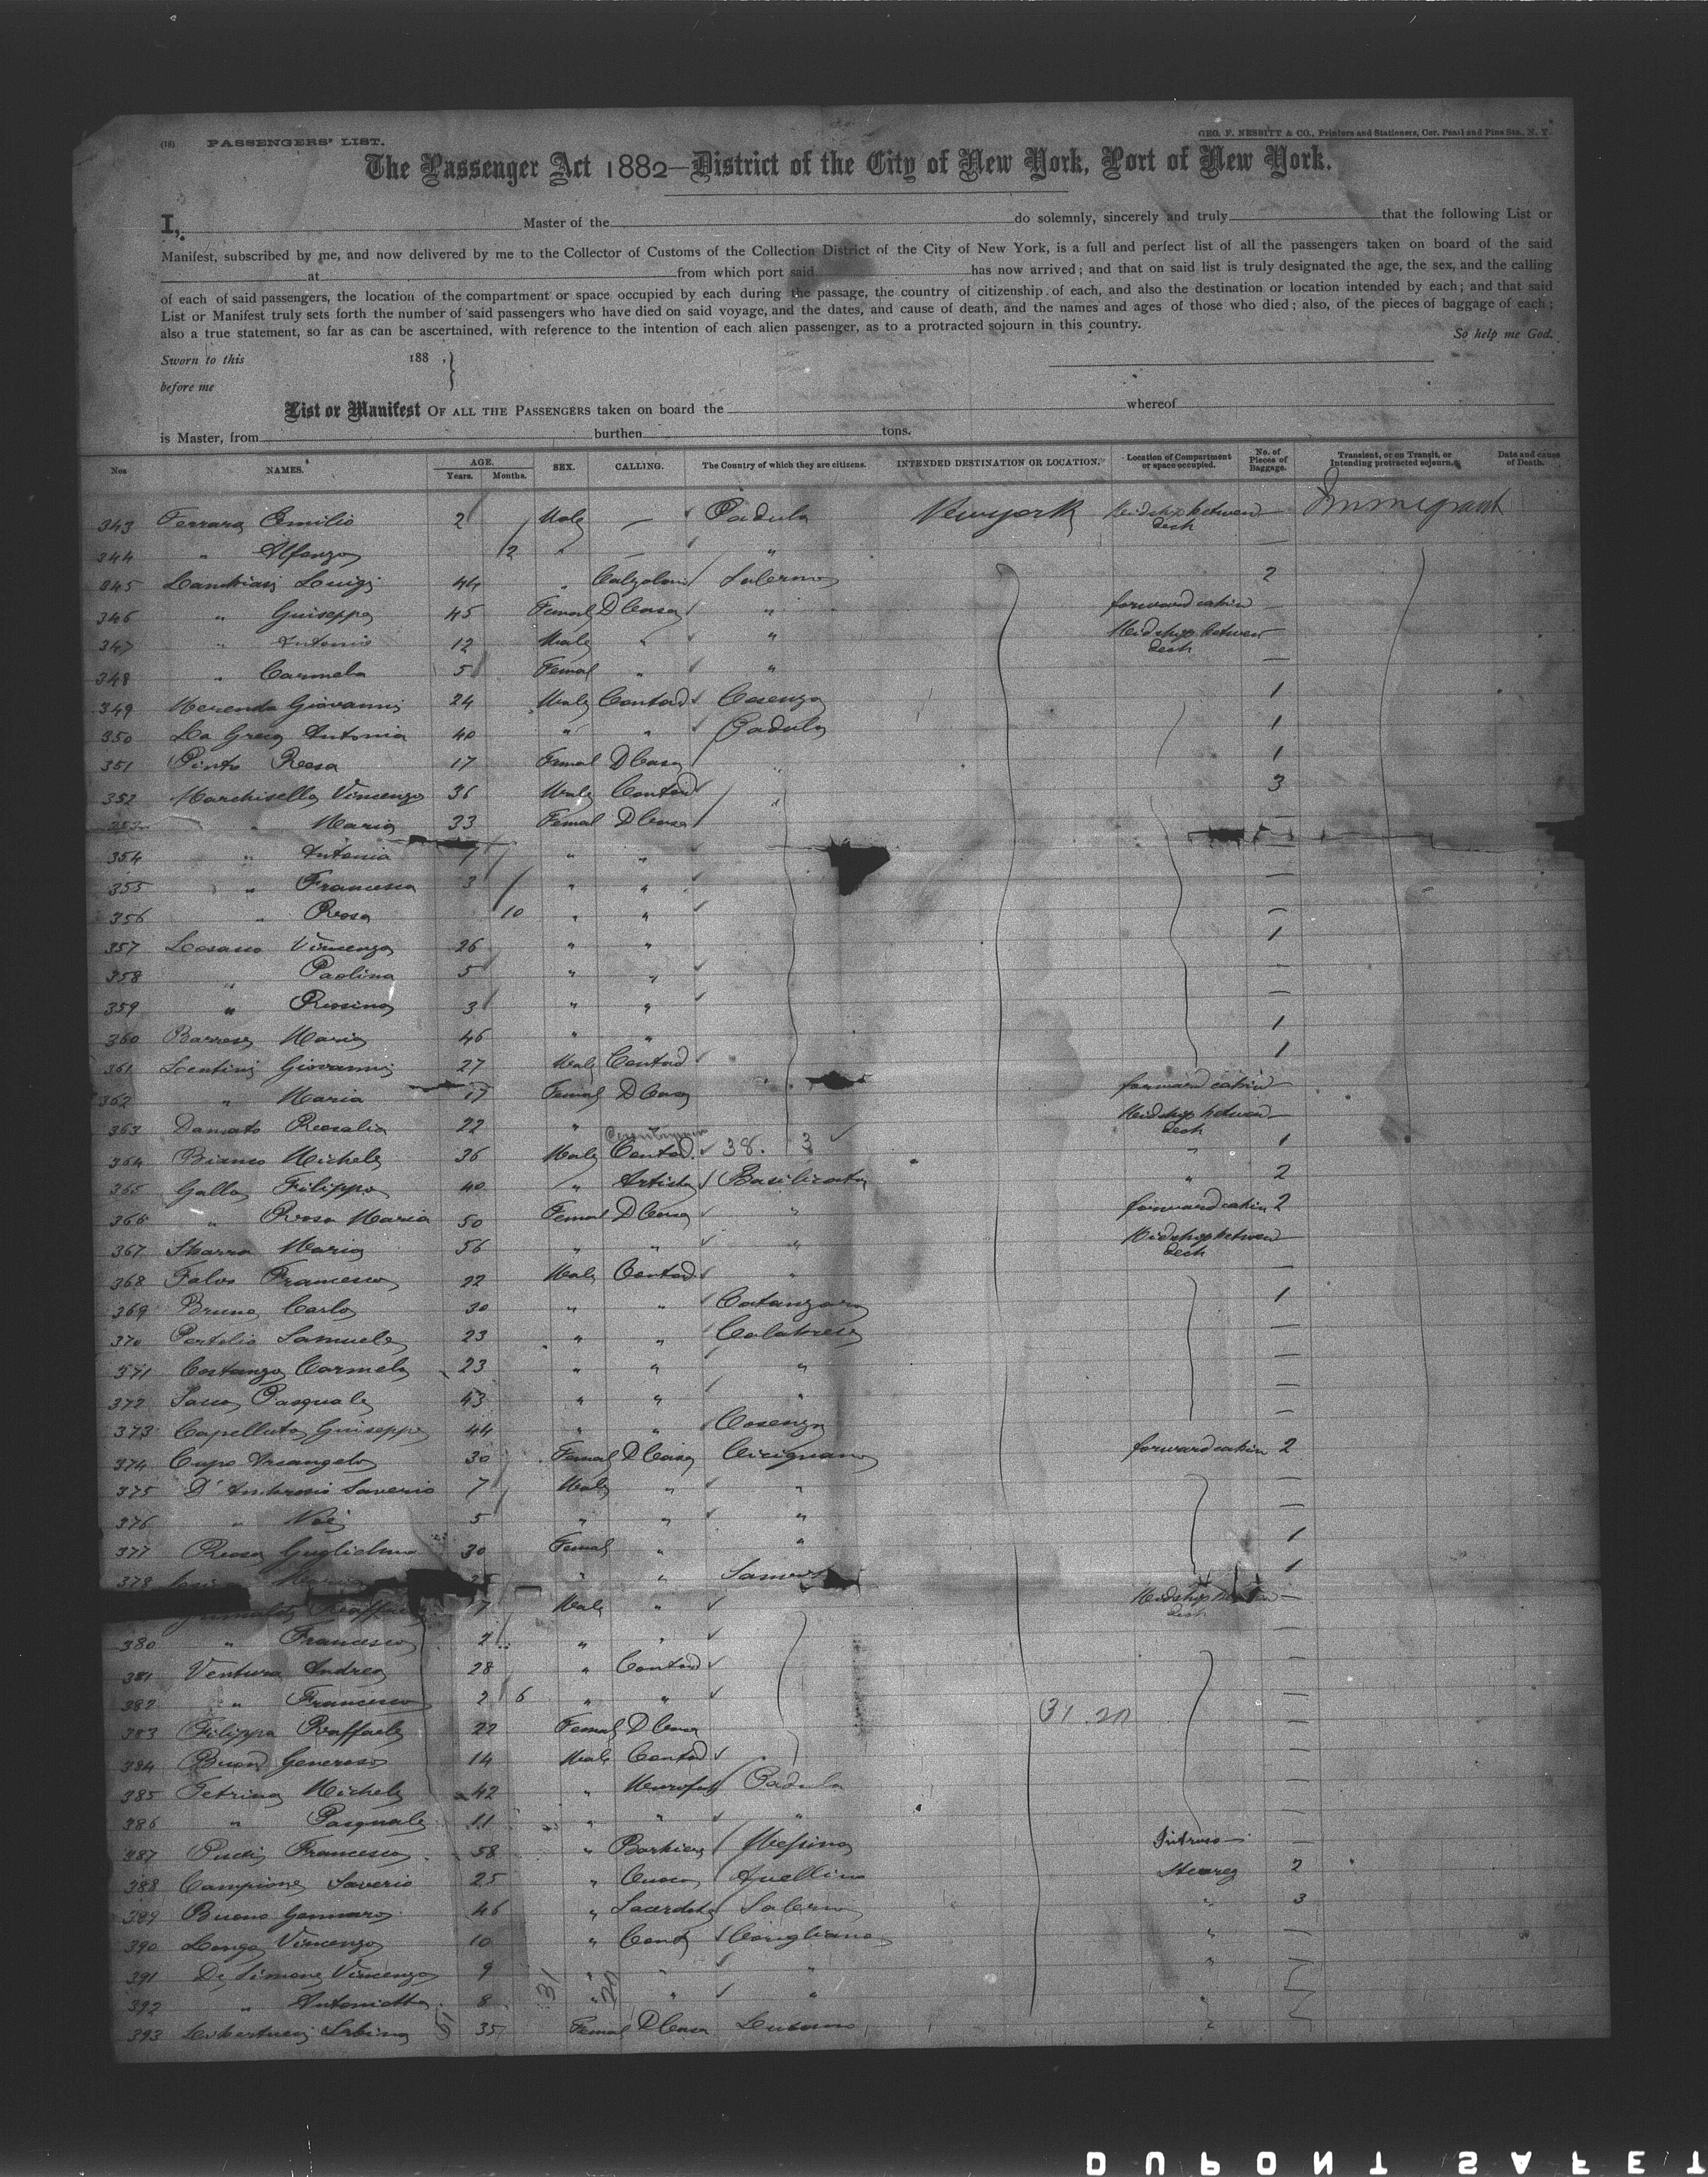 (18) PASSENGERS' LIST.
GEO. F. NESBITT & CO., Printers and Stationers, Cor. Pearl and Pine Sts., N. Y.
The Passenger Act 1882—District of the City of New York, Port of New York.
I, Master of the do solemnly, sincerely and truly that the following List or
Manifest, subscribed by me, and now delivered by me to the Collector of Customs of the Collection District of the City of New York, is a full and perfect list of all the passengers taken on board of the said
at from which port said has now arrived; and that on said list is truly designated the age, the sex, and the calling
of each of said passengers, the location of the compartment or space occupied by each during the passage, the country of citizenship of each, and also the destination or location intended by each; and that said
List or Manifest truly sets forth the number of said passengers who have died on said voyage, and the dates, and cause of death, and the names and ages of those who died; also, of the pieces of baggage of each;
also a true statement, so far as can be ascertained, with reference to the intention of each alien passenger, as to a protracted sojourn in this country. So help me God.
Sworn to this 188 , }
before me
List or Manifest OF ALL THE PASSENGERS taken on board the whereof
is Master, from burthen tons.
Nos NAMES. AGE. Years. Months. SEX. CALLING. The Country of which they are citizens. INTENDED DESTINATION OR LOCATION. Location of Compartment or space occupied. No. of Pieces of Baggage. Transient, or on Transit, or Intending protracted sojourn. Date and cause of Death.
343 Ferrara Emilio 2 Male — Padula New york Midship between deck — Immigrant
344 " Alfonzo 2 " — " —
345 Luigi 44 " Calzolaio Salerno 2
346 " Guiseppa 45 Femal D Casa " forward cabin —
347 " Antonio 12 Male " " Midship between deck —
348 " Carmela 5 Femal " " —
349 Merenda Giovanni 24 Male Contad Cosenza 1
350 La Greca Antonia 40 " " Padula 1
351 Pinto Rosa 17 Femal D Casa 1
352 Marchisella Vincenzo 36 Male Contad " 3
353 " Maria 33 Femal D Casa —
354 " Antonia 7 " " —
355 " Francesca 3 " " —
356 " Rosa 10 " " —
357 Losasso Vincenza 26 " " 1
358 " Paolina 5 " " —
359 " Rosina 3 " " —
360 Barrese Maria 46 " " 1
361 Lentini Giovanni 27 Male Contad 1
362 " Maria 17 Femal D Casa forward cabin —
363 Damato Rosalia 22 " Midship between deck —
364 Bianco Michele 36 Male Contad. 38. 3 " 1
365 Gallo Filippo 40 " Artista Basilicata " 2
366 " Rosa Maria 50 Femal D Casa " forward cabin 2
367 Sbarra Maria 56 " " " Midship between deck —
368 Falvo Francesco 22 Male Contad " —
369 Bruno Carlo 30 " " Catanzaro 1
370 Samuele 23 " " Calabrese —
371 Costanzo Carmela 23 " " " —
372 Sacco Pasquale 43 " " " —
373 Capelluto Guiseppe 44 " " Cosenza —
374 Cupo Arcangela 30 Femal D Casa Cicignano forward cabin 2
375 D'Ambrosio Saverio 7 Male " " —
376 " Noè 5 " " " —
377 Rosa Guglielma 30 Femal " " 1
378 Maria 25 " " 1
Grimaldi Raffaele 7 Male " Midship between deck —
380 " Francesco 2 " " —
381 Ventura Andrea 28 " Contad —
382 " Francesco 2 6 " " —
383 Filippa Raffaela 22 Femal D Casa 31 20 —
384 Generoso 14 Male Contad —
385 Petrina Michele 42 " Padula —
386 " Pasquale 11 " " " —
387 Francesco 58 " Barbiere Messina —
388 Campione Saverio 25 " Cuoco Avellino 2
389 Buono Gennaro 46 " Sacerdote Salerno " 3
390 Longo Vincenzo 10 " Cont Corigliano " —
391 De Simone Vincenzo 9 " " " "
392 " Antonietta 8 " " " "
31 20
393 35 Femal D Casa "
DUPONT SAFET